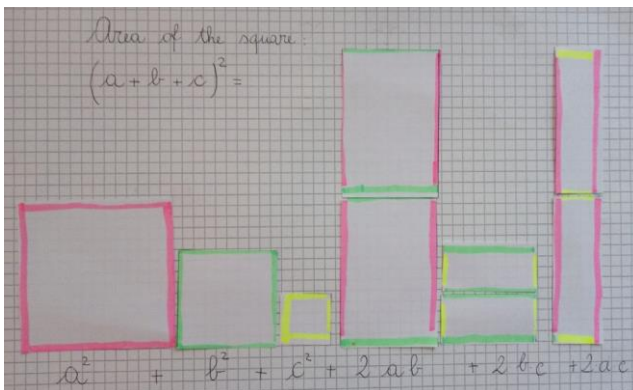 Area of the square:
(a + b + c)² =
a² + b² + c² + 2 ab + 2 bc + 2 ac